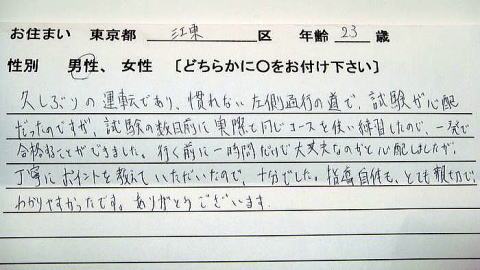 お住まい 東京都 江東 区 年齢 23 歳
性別 男性、女性 〔どちらかに〇をお付け下さい〕
久しぶりの運転であり、慣れない左側通行の道で、試験が心配
だったのですが、試験の数日前に実際と同じコースを使い練習したので、一発で
合格することができました。行く前に一時間だけで大丈夫なのかと心配しましたが、
丁寧にポイントを教えていただいたので、十分でした。指導自体も、とても親切で、
わかりやすかったです。ありがとうございます。